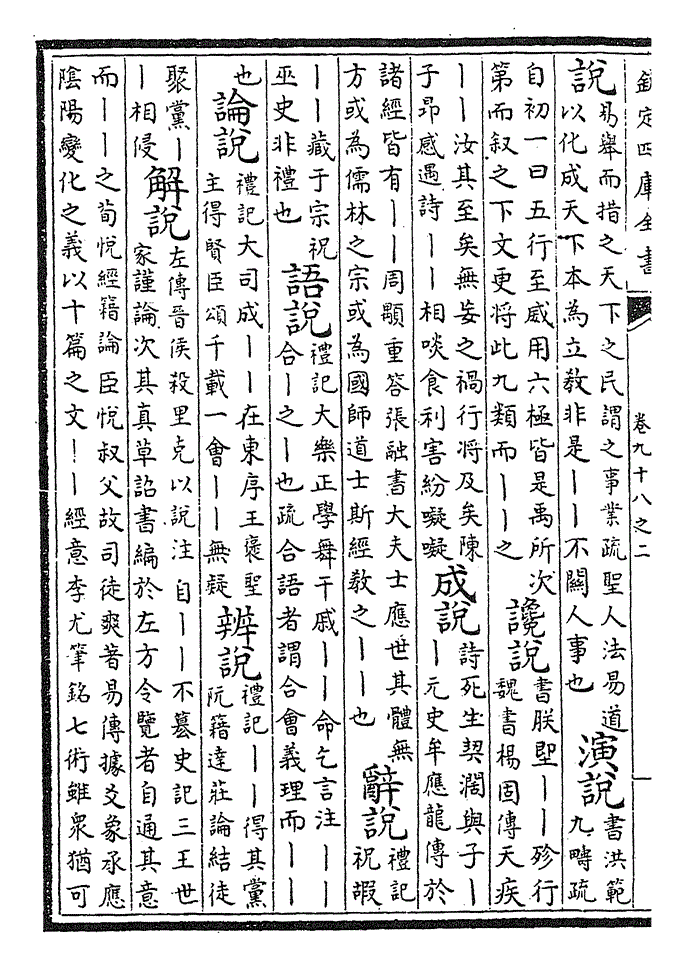 欽定四庫全書 卷九十八之二
說易舉而措之天下之民謂之事業疏聖人法易道以化成天下本為立教非是丨丨不關人事也演說書洪範九疇疏
自初一曰五行至威用六極皆是禹所次第而叙之下文更將此九類而丨丨之讒說書朕堲丨丨殄行魏書楊固傳天疾
丨丨汝其至矣無妄之禍行將及矣陳子昂感遇詩丨丨相啖食利害紛㘈㘈成說詩死生契濶與子丨丨元史牟應龍傳於
諸經皆有丨丨周顒重答張融書大夫士應世其體無方或為儒林之宗或為國師道士斯經敎之丨丨也辭說禮記祝嘏
丨丨藏于宗祝巫史非禮也語說禮記大樂正學舞干戚丨丨命乞言注丨丨合丨之丨也疏合語者謂合會義理而丨丨
也論說禮記大司成丨丨在東序王褒聖主得賢臣頌千載一會丨丨無疑辨說禮記丨丨得其黨阮籍達莊論結徒
聚黨丨丨相侵解說左傳晉侯殺里克以說注自丨丨不墓史記三王世家謹論次其真草詔書編於左方令覽者自通其意
而丨丨之荀悅經籍論臣悅叔父故司徒爽著易傳據爻象承應陰陽變化之義以十篇之文丨丨經意李尤筆銘七術雖衆猶可